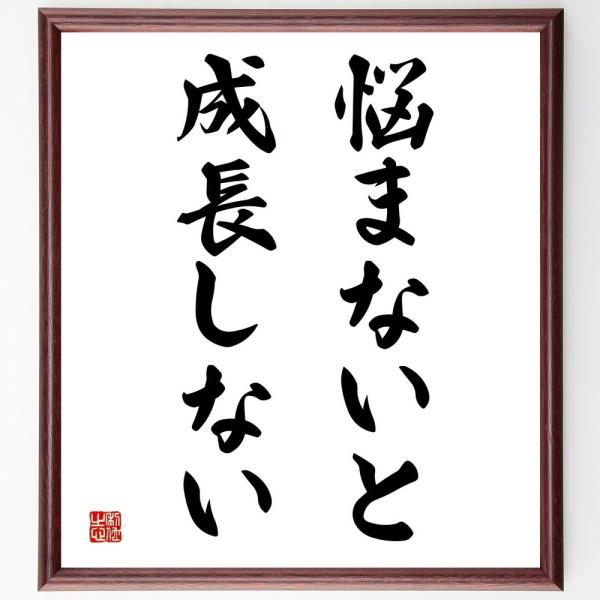 悩まないと
成長しない